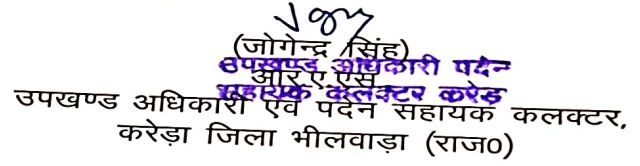 (जोगेन्द्र सिंह)
उपखण्ड अधिकारी पदेन
आर.ए.एस
सहायक कलक्टर करेड़
उपखण्ड अधिकारी एवं पदेन सहायक कलक्टर,
करेड़ा जिला भीलवाड़ा (राज0)